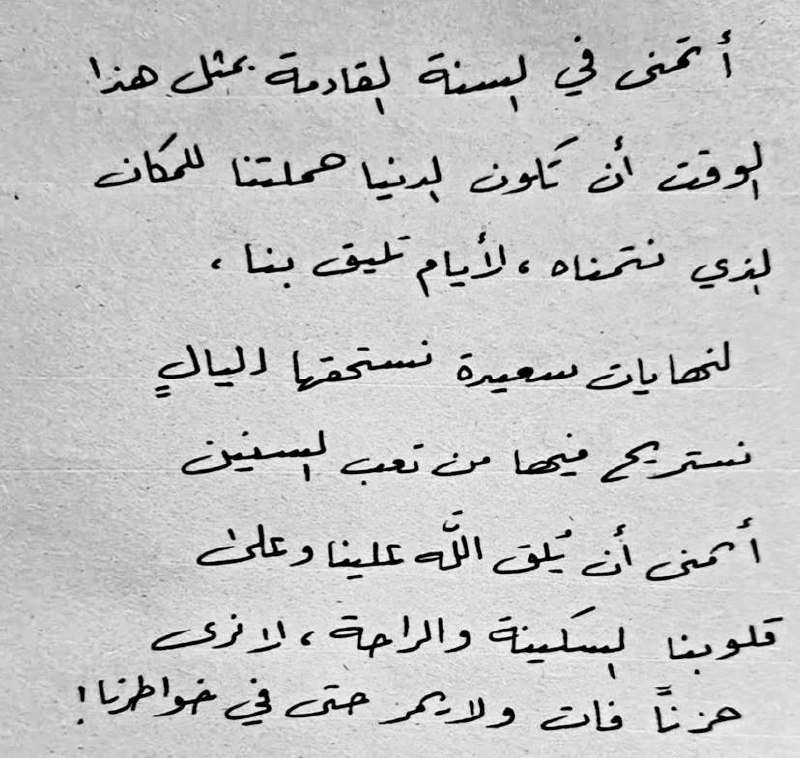 أتمنى في السنة القادمة بمثل هذا
الوقت أن تكون الدنيا حملتنا للمكان
الذي نتمناه ، لأيام تليق بنا ،
لنهايات سعيدة نستحقها اليالٍ
نستريح فيها من تعب السنين
أتمنى أن يُلق اللَّه علينا وعلى
قلوبنا السكينة والراحة ، لا نرى
حزناً فات ولا يمر حتى في خواطرنا !